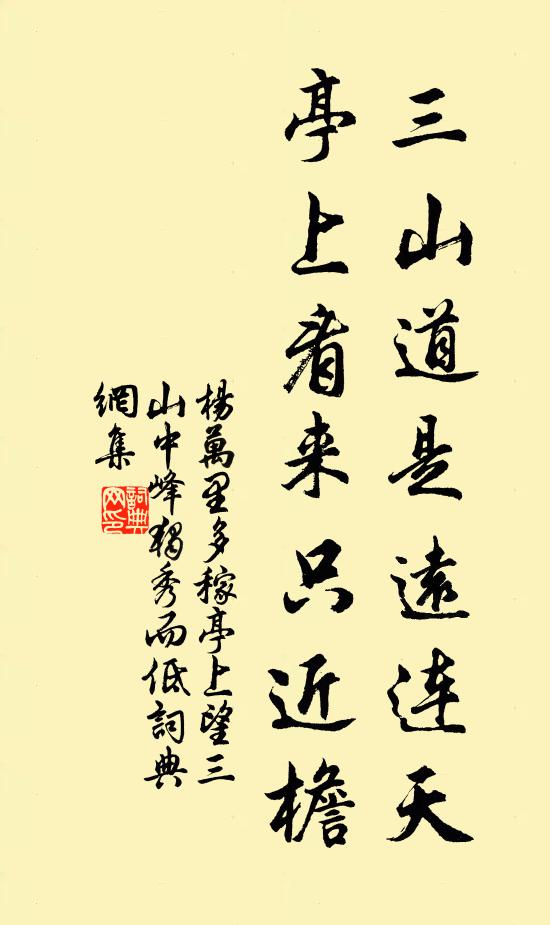 三山道是遠連天
亭上看来只近檐
楊萬里多稼亭上望三
山中峰獨秀而低詞典
網集
詞典
网印